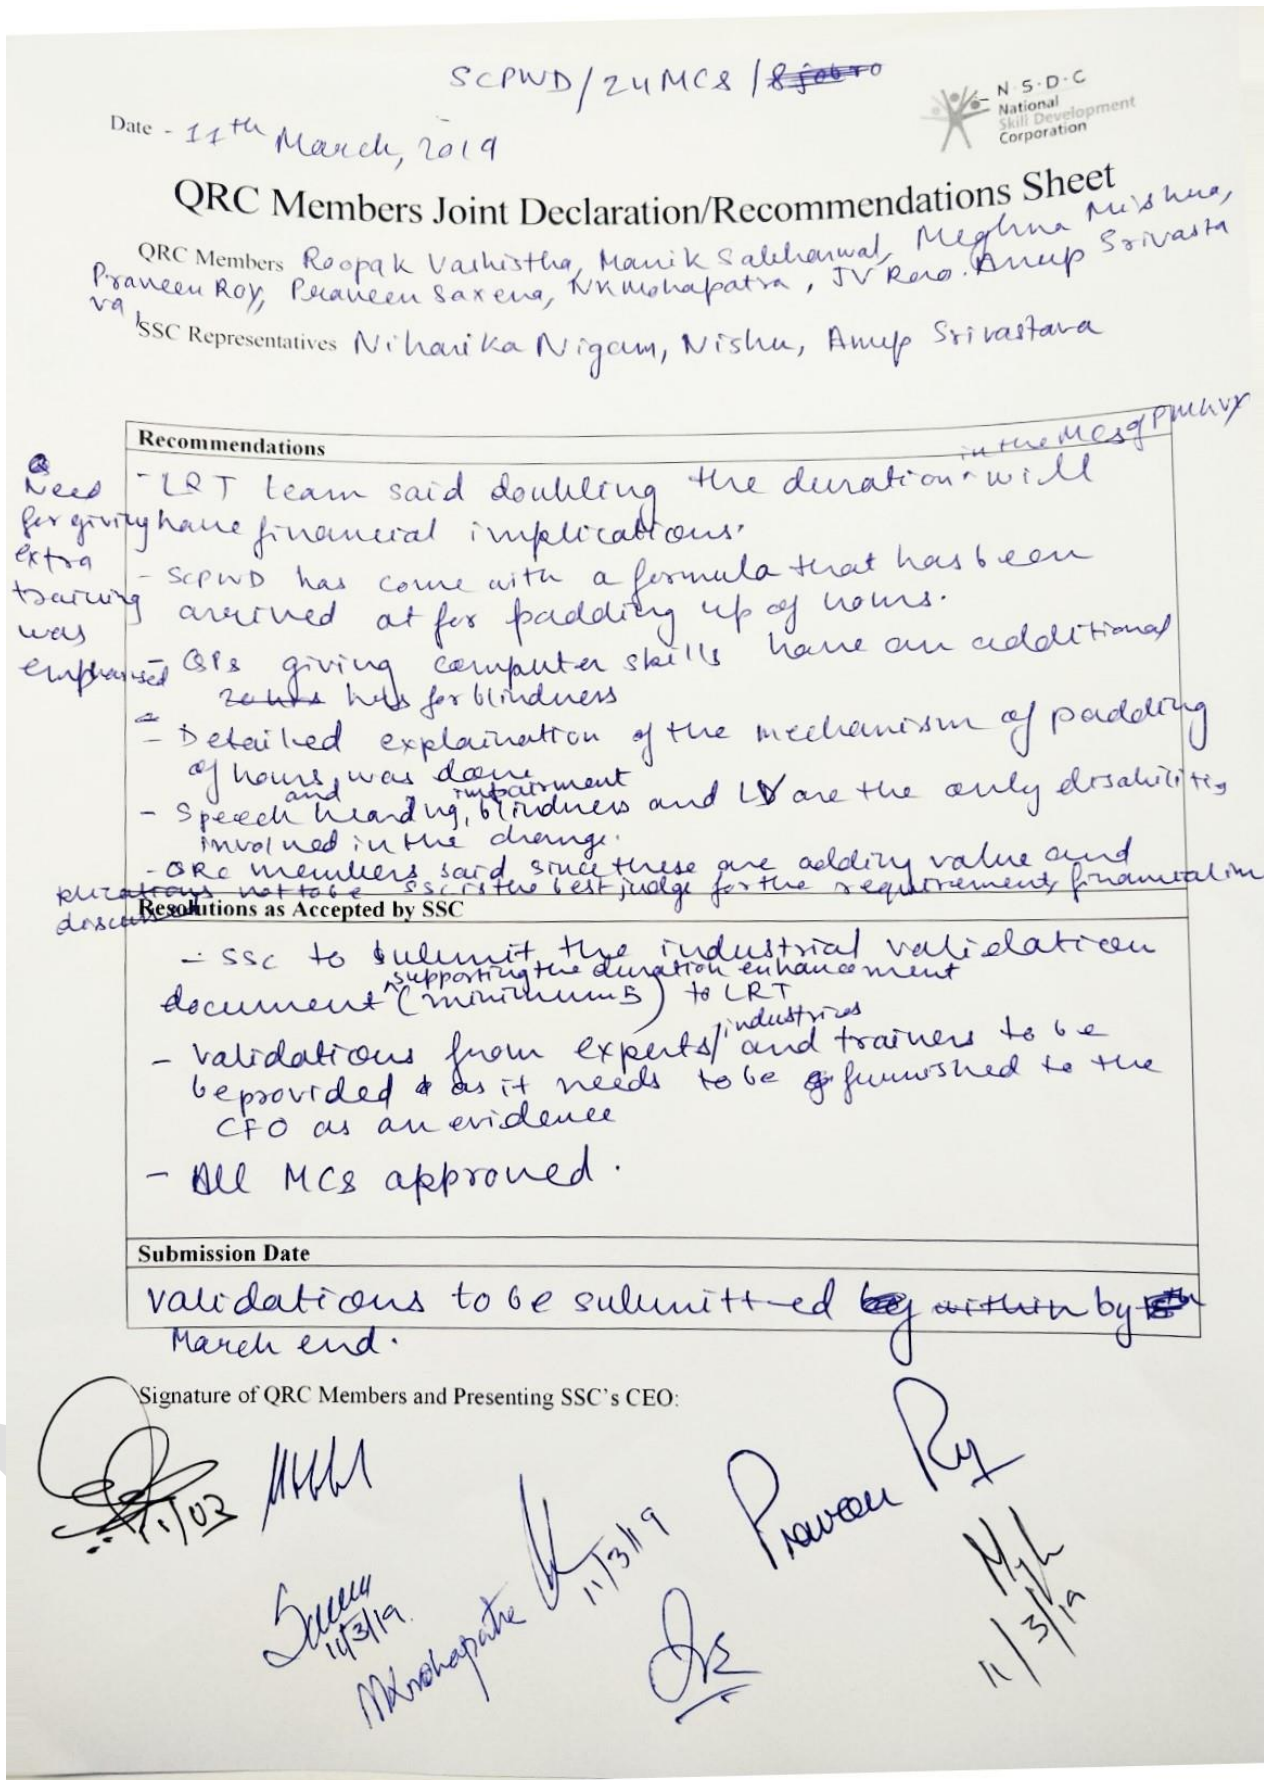 SCPWD/24MCS/
N·S·D·C
National
Skill Development
Corporation
Date - 11th March, 2019
QRC Members Joint Declaration/Recommendations Sheet
QRC Members Roopak Vashistha, Manik Sabharwal, Meghna Mishra,
Praveen Roy, Praveen Saxena, NKMohapatra, JV Rao. Anup Srivasta
va,
SSC Representatives Niharika Nigam, Nishu, Anup Srivastava
Recommendations
in the MCs of PMKVY
- LRT team said doubling the duration will
have financial implications.
Need
for giving
extra
training
was
emphasised
- SCPWD has come with a formula that has been
arrived at for padding up of hours.
- QPs giving computer skills have an additional
20 hrs hrs for blindness
- Detailed explaination of the mechanism of padding
of hours was done
- Speech and hearing impairment, blindness and LV are the only disabilities
involved in the change.
- QRC members said since these are adding value and
SSC is the best judge for the requirement, financial im
plications not to be
discuss
Resolutions as Accepted by SSC
- SSC to submit the industrial validation
supporting the duration enhancement
document (minimum 5) to LRT
- Validations from experts/industries and trainers to be
be provided as it needs to be furnished to the
CFO as an evidence
- All MCs approved.
Submission Date
Validations to be submitted by within by
March end.
Signature of QRC Members and Presenting SSC's CEO:
11/03
11/3/19
Praveen Roy
11/3/19
NKMohapatra
11/3/19